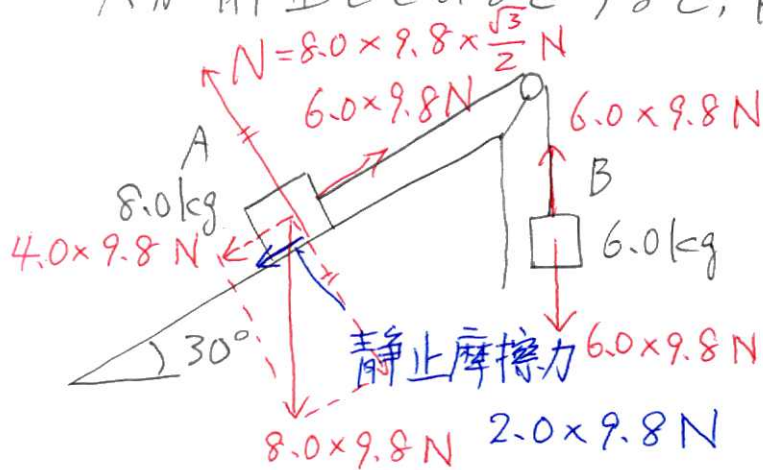 N=8.0×9.8×√3/2 N
6.0×9.8N
6.0×9.8N
A
B
8.0kg
4.0×9.8N
6.0kg
30°
静止摩擦力
6.0×9.8N
8.0×9.8N
2.0×9.8N